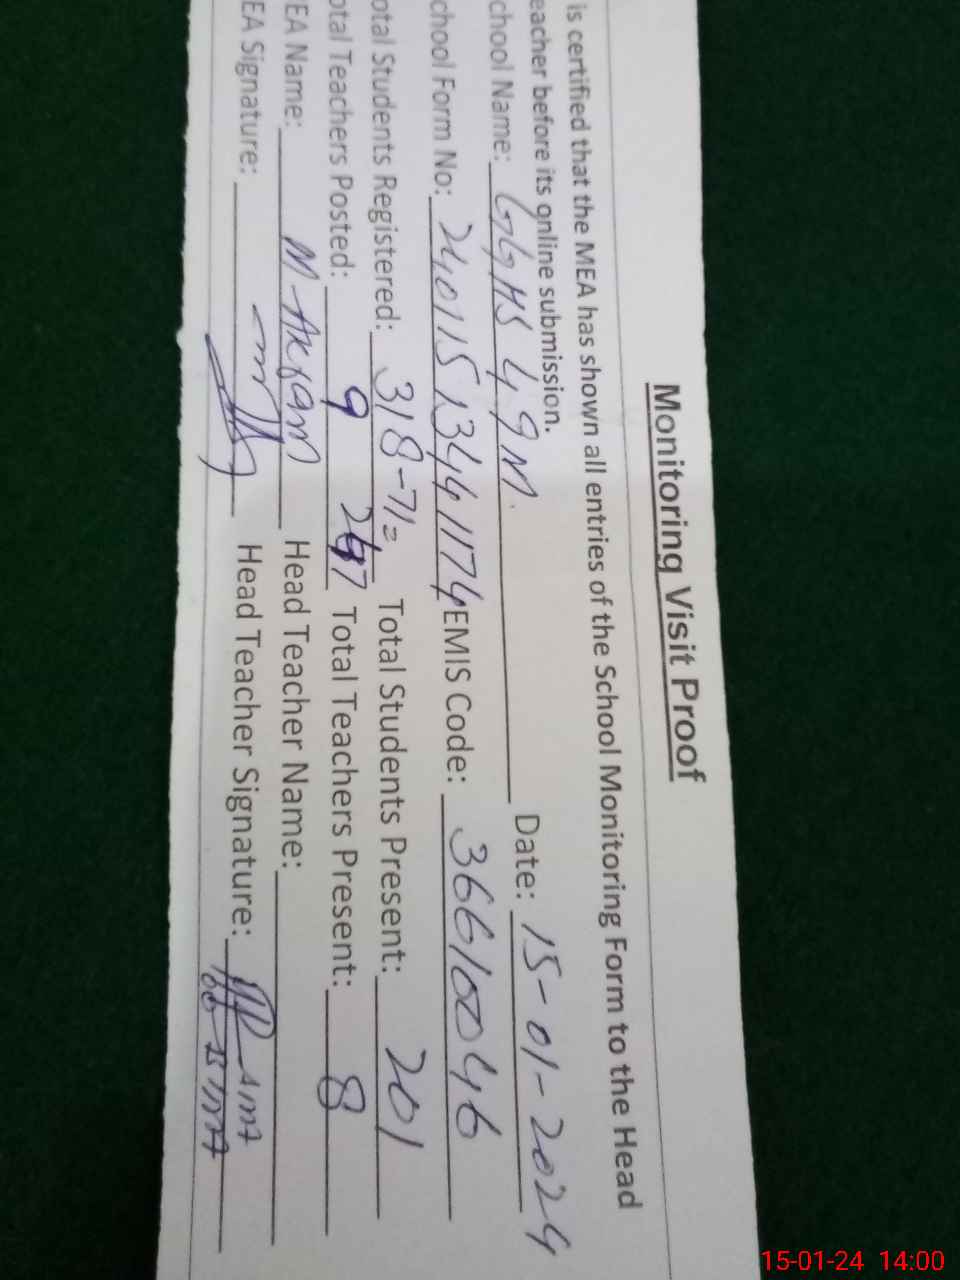 Monitoring Visit Proof
is certified that the MEA has shown all entries of the School Monitoring Form to the Head
eacher before its online submission.
chool Name: GGHS 49M. Date: 15-01-2024
chool Form No: 24011513441174 EMIS Code: 36610046
otal Students Registered: 318-71= 247 Total Students Present: 201
otal Teachers Posted: 9 Total Teachers Present: 8
EA Name: M Akram Head Teacher Name:
EA Signature: Head Teacher Signature:
15-01-24 14:00